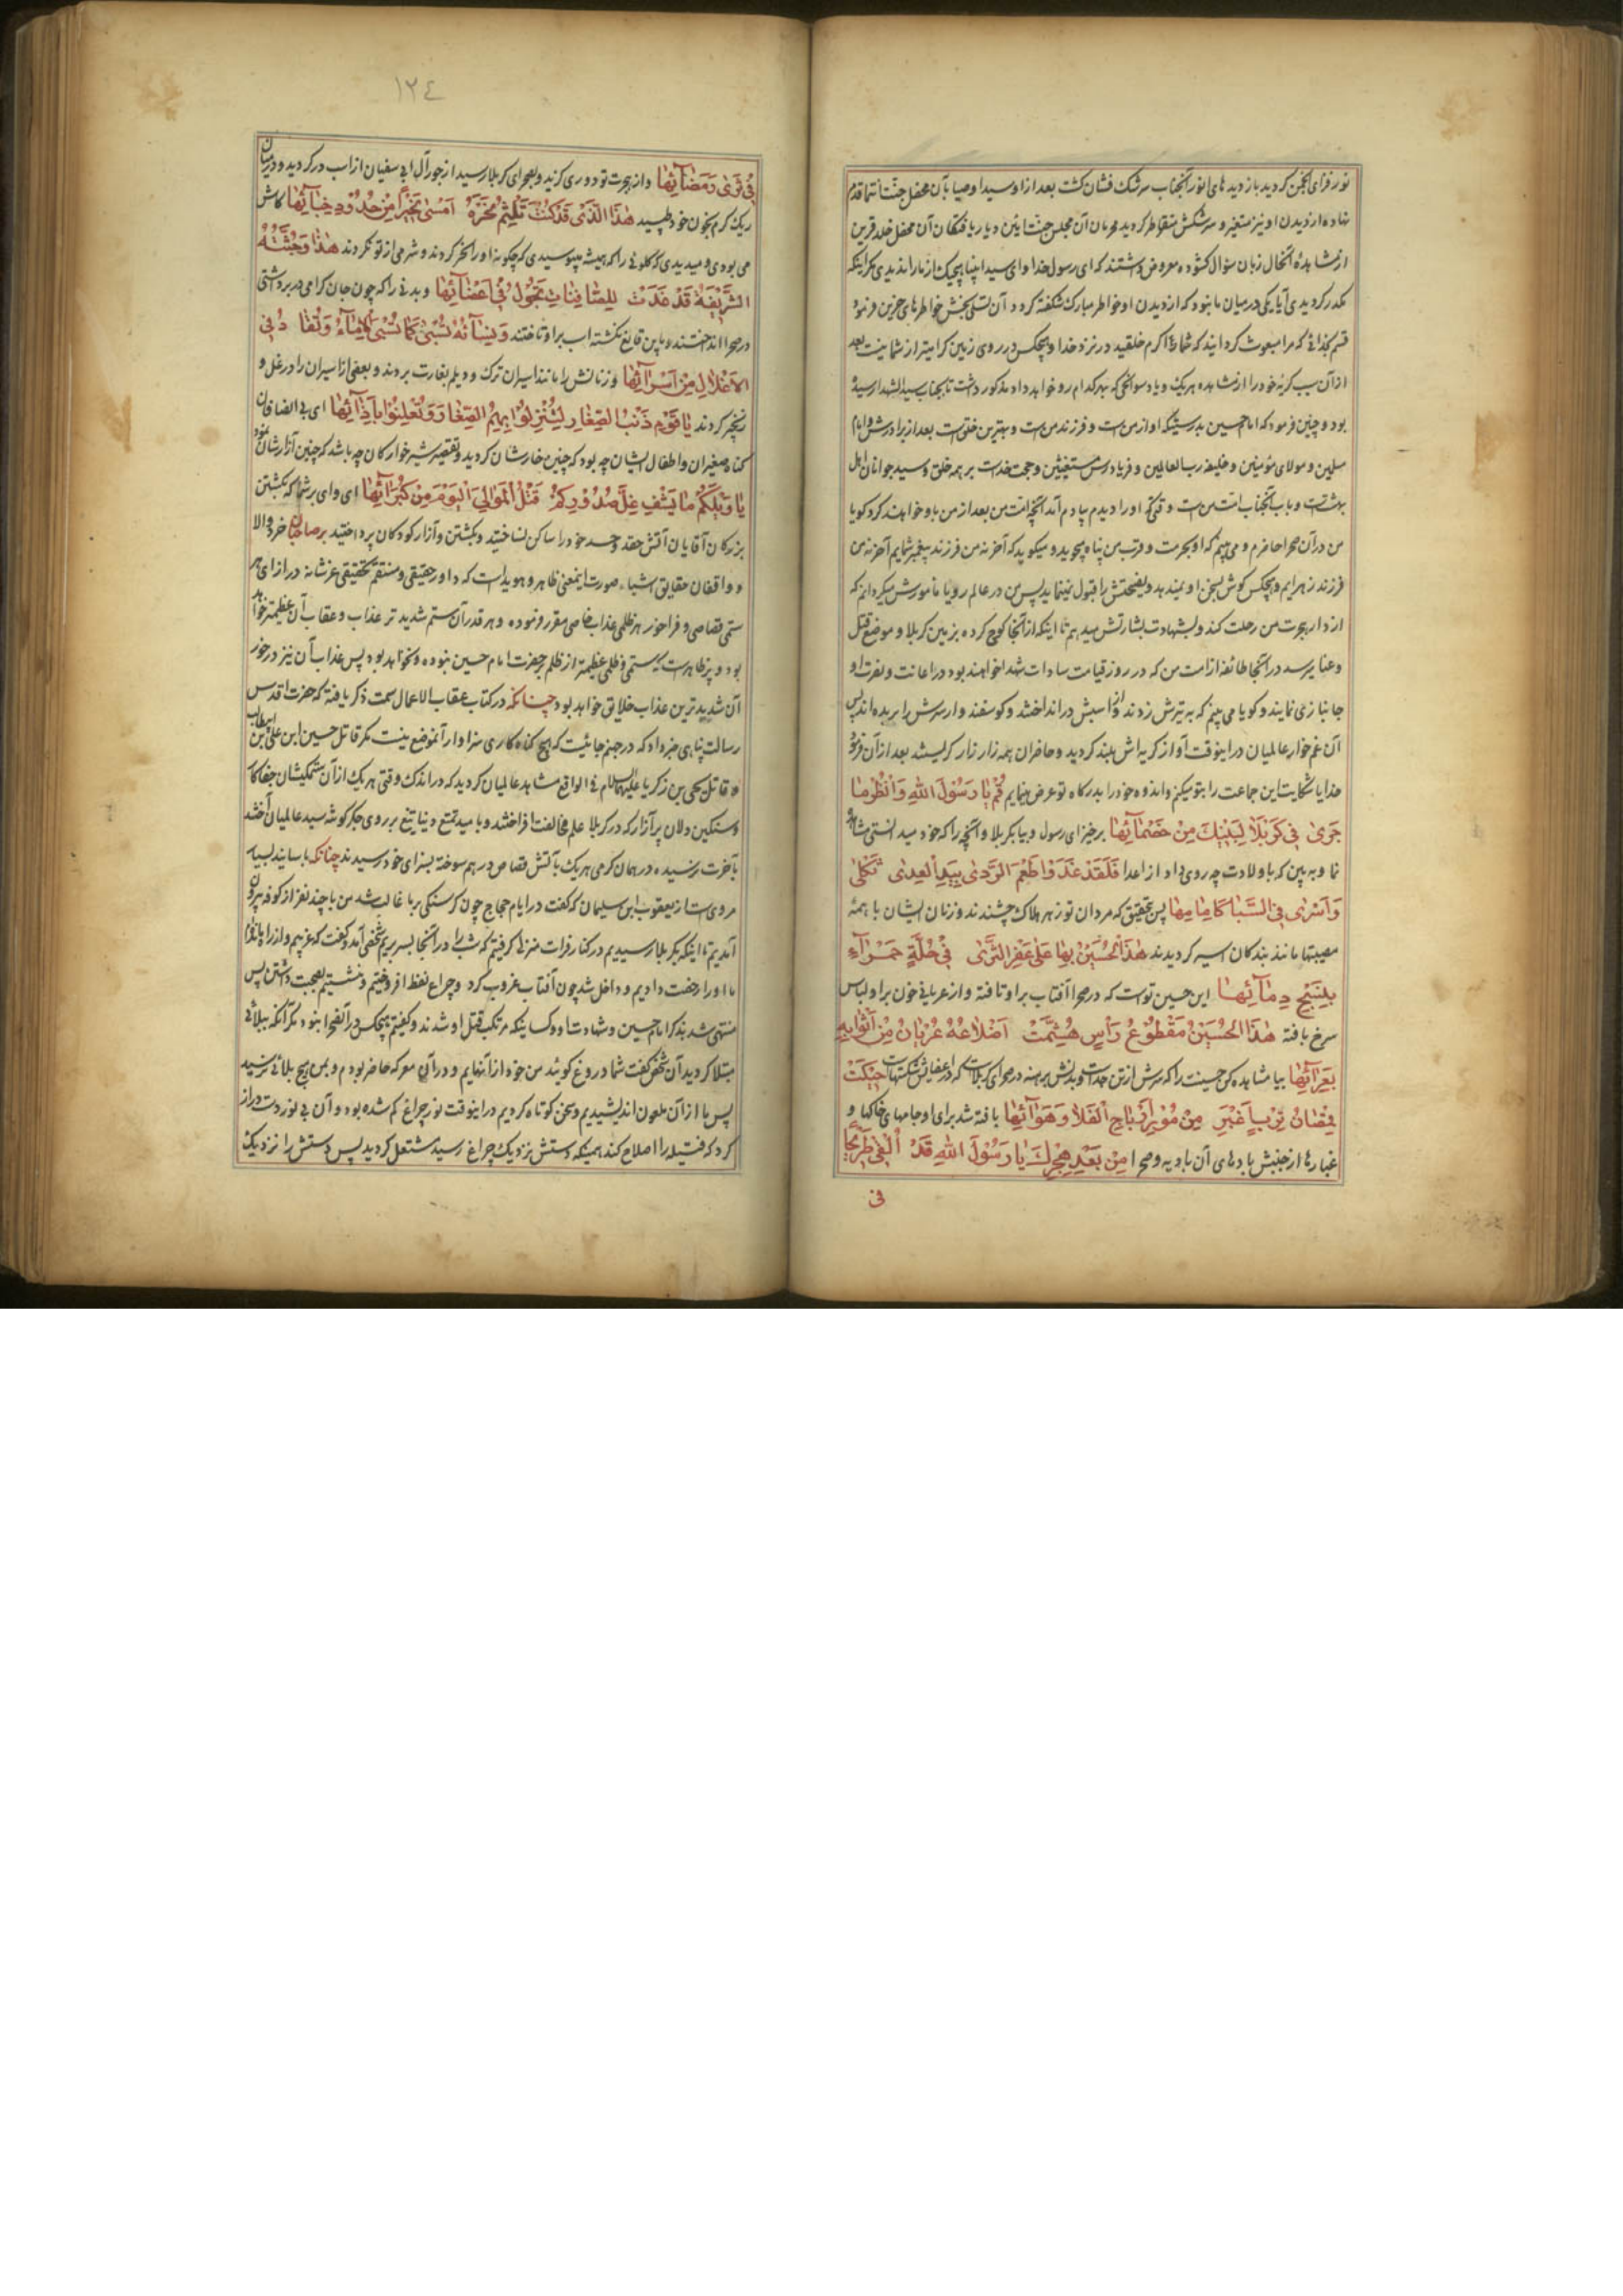 نور فزای انجمن کردید باز دید های انور آنجناب سرشک فشان کشت بعد از او سید اوصیا بآن محفل جنت انتما قدم
نهاده از دیدن او نیز متغیر و سرشکش متقاطر کردید محرمان آن مجلس جنت ائین و باریافتکان آن محفل خلد قرین
از مشاهدهٔ آنحال زبان سؤال کشوده معروض داشتند که ای رسول خدا و ای سید انبیا هیچیک از ما را ندیدی مکر اینکه
مکدر کردیدی آیا یکی در میان ما نبود که از دیدن او خاطر مبارک شکفته کردد آن تسلی بخش خواطرهای حزین فرمود
قسم بخدائی که مرا مبعوث کردانید که شما اکرم خلقید در نزد خدا و هیچکس در روی زمین کرامیتر از شما نیست بعد
از آن سبب کریهٔ خود را از مشاهده هریک و یاد سوانحی که بهر کدام رو خواهد داد مذکور داشت تا بجناب سید الشهدا رسید
بود و چنین فرمود که اما حسین بدرستیکه او از من است و فرزند من است و بهترین خلق است بعد از برادرش و امام
مسلمین و مولای مؤمنین و خلیفه رب العالمین و فریادرس مستغیثین و حجت خداست بر همه خلق و سید جوانان اهل
بهشت است و باب آنجناب امت من است وقتی که او را دیدم بیادم آمد آنچه امت من بعد از من با او خواهند کرد کویا
من در آن صحرا حاضرم و می بینم که او بحرمت و قرب من پناه میجوید و میکوید که آخر نه من فرزند پیغمبر شمایم آخر نه من
فرزند زهرایم و هیچکس کوش بسخن او نمیدهد و نصیحتش را قبول نمینماید پس من در عالم رویا مأمورش میکردانم که
از دار هجرت من رحلت کند و بشهادت بشارتش میدهم تا اینکه از آنجا کوچ کرده بزمین کربلا و موضع قتل
و عنا برسد در آنجا طائفه از امت من که در روز قیامت سادات شهدا خواهند بود در اعانت و نصرت او
جانبازی نمایند و کویا می بینم که به تیرش زدند و از اسبش در انداختند و کوسفند وار سرش را بریده اند پس
آن غم خوار عالمیان در اینوقت آواز کریه اش بلند کردید و حاضران همه زار زار کریستند بعد از آن فرمود
خدایا شکایت این جماعت را بتو میکنم و اندوه خود را بدرکاه تو عرض مینمایم قُمْ یا رَسُولَ اللهِ وَانْظُرْ ما
جَرىٰ فی کَرْبَلا لِبَنیكَ مِنْ خَصْمائِها برخیز ای رسول و بیا بکربلا و آنچه را که خود میدانستی مشاهده
نما و به بین که با ولادت چه روی داد از اعدا فَلَقَدْ غَدَوْا طَعْمَ الرَّدىٰ بِیَدِ الْعِدىٰ ثَکْلىٰ
وَاَسْرىٰ فی السَّبا کَاِمائِها پس بتحقیق که مردان تو زهر هلاک چشیدند و زنان ایشان با همهٔ
مصیبتها مانند بندکان اسیر کردیدند هٰذَا الْحُسَیْنُ بِها عَلىٰ عَفْرِ الثَّرىٰ فی حُلَّةٍ حَمْرآءِ
بِنَسیجِ دِمآئِها این حسین توست که در صحرا آفتاب بر او تافته و از عریانی خون بر او لباس
سرخ بافته هٰذَا الْحُسَیْنُ مَقْطُوعُ رَأْسٍ هُشِّمَتْ اَضْلاعُهُ عُرْیانُ مِنْ اَثْوابِهِ
بِعَرآئِها بیا مشاهده کن حسینت را که سرش از تن جداست و بدنش برهنه در صحرای کربلاست که در اعضایش شکستهاست حِیکَتْ
قُمْصانُ تِرْبٍ اَغْبَرٍ مِنْ مُورِ اَرْیاحِ الْفَلا وَهَوآئِها بافته شد برای او جامهای خاکها و
غبارها از جنبش بادهای آن بادیه و صحرا مِنْ بَعْدِ هَجْرِكَ یا رَسُولَ اللهِ قَدْ اُلْقِیَ طَریحًا
فی
١٢٤
فی ثَرىٰ رَمْضآئِها و از هجرت تو دوری کزید و بصحرای کربلا رسید از جور آل ابی سفیان از اب در کردید و در میان
ریک کرم بخون خود طپید هٰذَا الَّذی قَدْ کُنْتَ تَلْثِمُ نَحْرَهُ اَمْسىٰ نَحیرًا مِنْ حُدُودِ ظِبآئِها کاش
می بودی و میدیدی که کلوئی را که همیشه میبوسیدی که چکونه او را نحر کردند و شرمی از تو نکردند هٰذا وَجُثَّتُهُ
الشَّریفَةُ قَدْ غَدَتْ لِلصّافِناتِ تَجُولُ فی اَعْضآئِها و بدنی را که چون جان کرامی در بر داشتی
در صحرا انداختند و باین قانع نکشته اسب بر او تاختند وَنِسآئُهُ تُسْبىٰ کَما تُسْبَى الْاِمآءُ وَتُقادُ فی
الاَغْلالِ مِنْ اُسَرآئِها و زنانش را مانند اسیران ترک و دیلم بغارت بردند و بعضی از اسیران را در غل و
زنجیر کردند یا قَوْمِ ذَنْبُ الصِّغارِ لِتُنْزِلُوا بِهِمُ الصِّغارَ وَتُعْلِنُوا بِاَذآئِها ای بی انصافان
کناه صغیران و اطفال ایشان چه بود که چنین خارشان کردید و تقصیر شیرخوارکان چه باشد که چنین آزارشان نمود
یا وَیْلَکُمْ ما یَشْفِ غِلَّ صُدُورِکُمْ قَتْلُ الْمَوالِی الْیَوْمَ مِنْ کُبَرآئِها ای وای بر شما که بکشتن
بزرکان آقایان آتش حقد و حسد خود را ساکن نساختید و بکشتن و آزار کودکان پرداختید بر صاحبان خرد والا
و واقفان حقایق اشیاء صورت اینمعنی ظاهر و هویداست که داور حقیقی و منتقم تحقیقی عز شانه در ازای هر
ستمی قصاصی و فراخور هر ظلمی عذاب خاصی مقرر فرموده و هر قدر آن ستم شدیدتر عذاب و عقاب آن عظیمتر خواهد
بود و پر ظاهر است که ستمی و ظلمی عظیمتر از ظلم بر حضرت امام حسین نبوده و نخواهد بود پس عذاب آن نیز در خور
آن شدیدترین عذاب خلایق خواهد بود چنانکه در کتاب عقاب الاعمال سمت ذکر یافته که حضرت اقدس
رسالت پناهی خبر داد که در جهنم جائیست که هیچ کناه کاری سزاوار آنموضع نیست مکر قاتل حسین ابن علی بن ابیطالب
و قاتل یحیی بن زکریا علیهما السلام فی الواقع مشاهد عالمیان کردید که در اندک وقتی هر یک از آن ستمکیشان جفاکار
و سنکین دلان پر آزار که در کربلا علم مخالفت افراختند و بامید تمتع دنیا تیغ بر روی جکرکوشه سید عالمیان آختند
بآخرت نرسیده در همان کرمی هر یک بآتش قصاص در هم سوخته بسزای خود رسیدند چنانکه باسانید بسیار
مرویست از یعقوب ابن سلیمان که کفت در ایام حجاج چون کرسنکی بر ما غالب شد من با چند نفر از کوفه بیرون
آمدیم تا اینکه بکربلا رسیدیم در کنار فرات منزل کرفتیم که شب را در آنجا بسر بریم شخصی آمد و کفت که غریبم و از راه بازمانده ام
ما او را رخصت دادیم و داخل شد چون آفتاب غروب کرد و چراغ نفط افروختیم و نشستیم بصحبت داشتن پس
منتهی شد بذکر امام حسین و شهادت او و کسانیکه مرتکب قتل او شدند و کفتیم هیچکس در آنصحرا نبود مکر آنکه ببلائی
مبتلا کردید آن شخص کفت شما دروغ کوئید من خود از آنهایم و در آن معرکه حاضر بودم و بمن هیچ بلائی نرسید
پس ما از آن ملعون اندیشیدیم و سخن کوتاه کردیم در اینوقت نور چراغ کم شده بود و آن بی نور دست دراز
کرد که فتیله را اصلاح کند همینکه دستش نزدیک چراغ رسید مشتعل کردید پس دستش را نزدیک